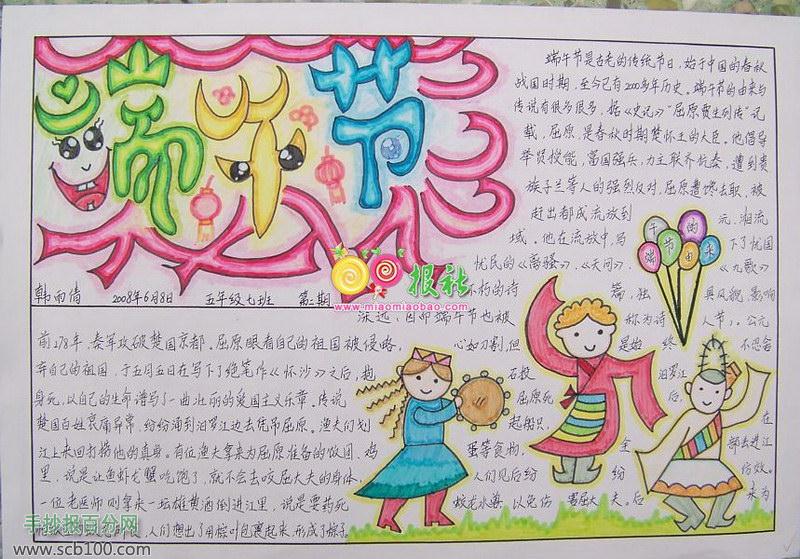 端午节
端午节是古老的传统节日，始于中国的春秋
战国时期，至今已有2000多年历史。端午节的由来与
传说有很多很多，据《史记》“屈原贾生列传”记
载，屈原，是春秋时期楚怀王的大臣。他倡导
举贤授能，富国强兵，力主联齐抗秦，遭到贵
族子兰等人的强烈反对，屈原遭馋去职，被
赶出都成，流放到 元、湘流
域。他在流放中，写 下了忧国
忧民的《离骚》、《天问》、 《九歌》
不朽的诗 篇，独 具风貌，影响
深远，因而端午节也被 称为诗 人节）。公元
端午节的由来
报社
www.miaomiaobao.com
韩雨倩 2008年6月8日 五年级七班 第二期
前278年，秦军攻破楚国京都，屈原眼看自己的祖国被侵略， 心如刀割，但 是始 终 不忍舍
弃自己的祖国，于五月五日在写下了绝笔作《怀沙》之后，抱 石投 汨罗江
身死，以自己的生命谱写了一曲壮丽的爱国主义乐章。传说 屈原死 后，
楚国百姓哀痛异常，纷纷涌到汨罗江边去凭吊屈原。渔夫们划 起船只， 在
江上来回打捞他的真身。有位渔夫拿来为屈原准备的饭团、鸡 蛋等食物， 全 部丢进江
里，说是让鱼虾龙蟹吃饱了，就不会去咬屈大夫的身体。 人们见后纷 纷 仿效。
一位老医师则拿来一坛雄黄酒倒进江里，说是要药死 蛟龙水兽，以免伤 害屈大 夫。后 来为
人们想出了用粽叶包裹起来，形成了粽子。
手抄报百分网
www.scb100.com